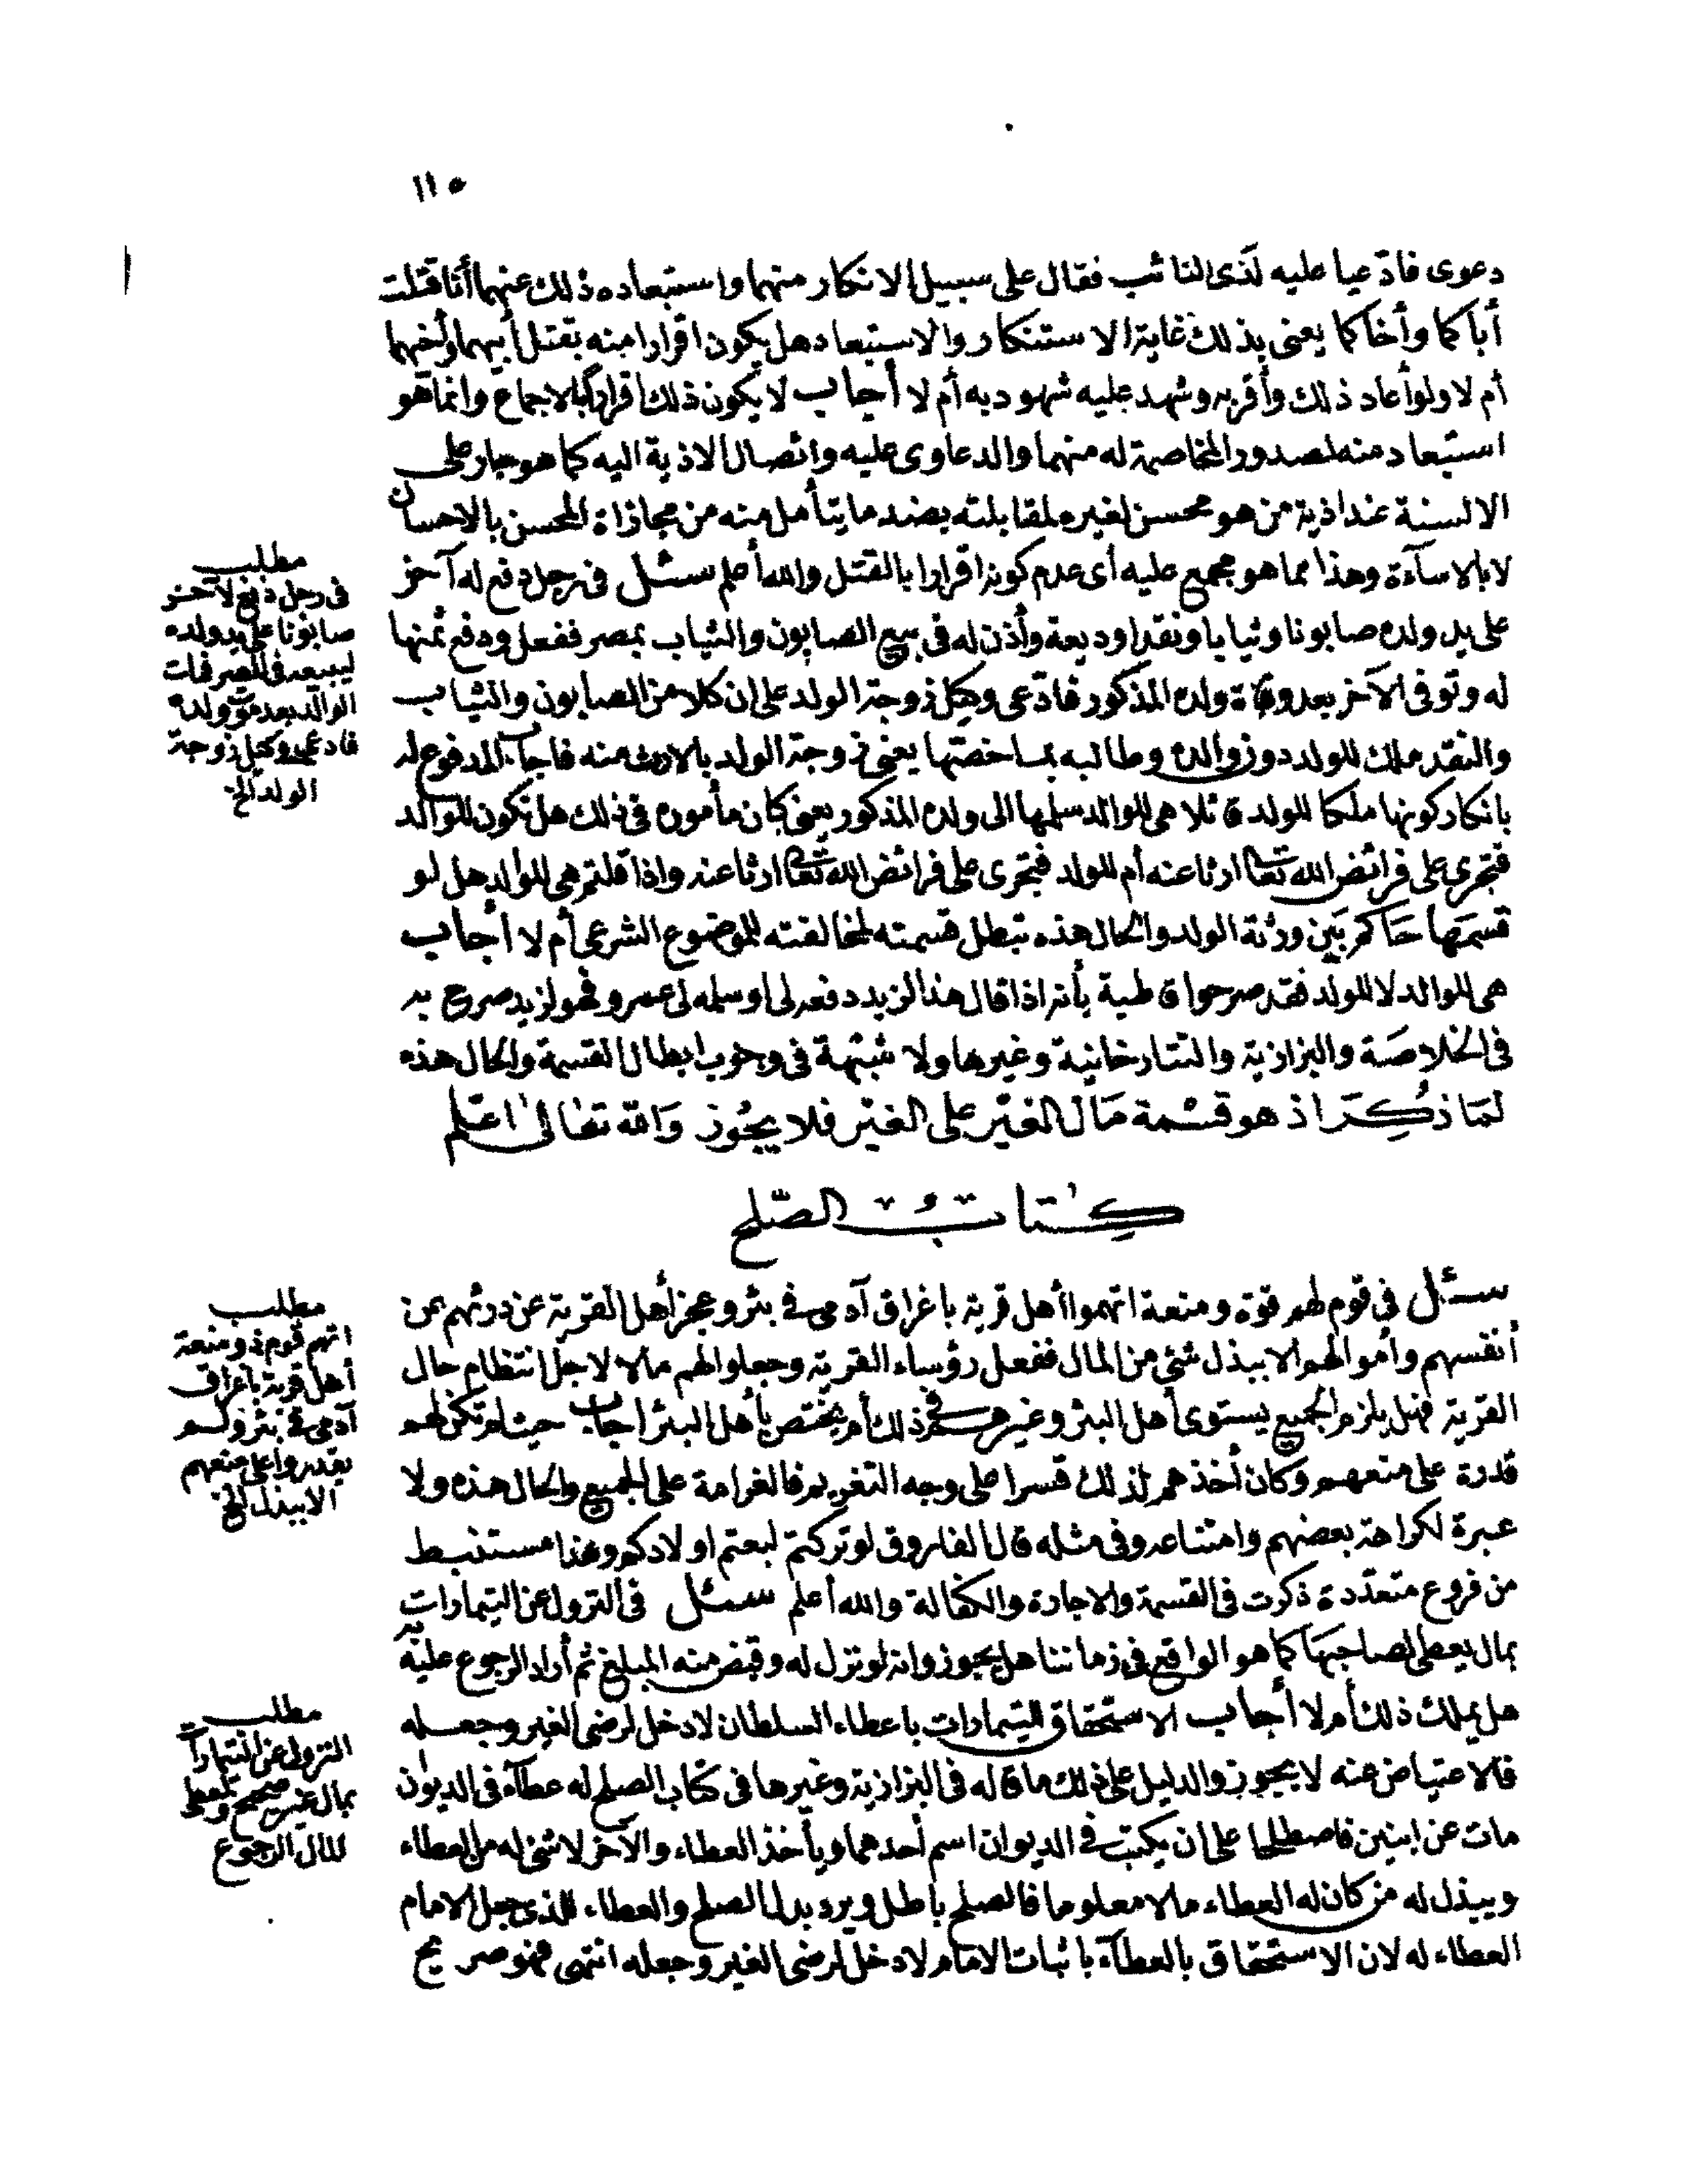 ١١٥
دعوى فادّعيا عليه لدى النائب فقال على سبيل الانكار منهما واستبعاده ذلك عنهما أنا قتلت
أباكما وأخاكما يعنى بذلك غاية الاستنكار والاستبعاد هل يكون اقرارا منه بقتل أبيهما وأخيهما
أم لا ولو أعاد ذلك وأقر به وشهد عليه شهود به أم لا أجاب لا يكون ذلك اقرارا بالاجماع وانما هو
استبعاد منه لصدور المخاصمة له منهما والدعاوى عليه واتصال الاذية اليه كما هو جار على
الالسنة عند اذية من هو محسن لغيره لمقابلته بضد ما يتأمل منه من مجازاة المحسن بالاحسان
لا بالاسآءة وهذا مما هو مجمع عليه أى عدم كونه اقرارا بالقتل والله أعلم سئل فى رجل دفع له آخر
على يد ولده صابونا وثيابا ونقدا وديعة وأذن له فى بيع الصابون والثياب بمصر ففعل ودفع ثمنها
له وتوفى الآخر بعد وفاة ولده المذكور فادّعى وكيل زوجة الولد على ان كلا من الصابون والثياب
والنقد ملك للولد دون والده وطالبه بما خصتها يعنى زوجة الولد بالارث منه فاجاب المدفوع له
بانكار كونها ملكا للولد قائلا هى للوالد سلمها الى ولده المذكور يعنى كان مأموره فى ذلك هل تكون للوالد
فتجرى على فرائض الله تعالى ارثا عنه أم للولد فتجرى على فرائض الله تعالى ارثا عنه واذا قلتم هى للوالد هل لو
قسمها حاكم بين ورثة الولد والحال هذه تبطل قسمته لمخالفته للموضوع الشرعى أم لا أجاب
هى للوالد لا للولد فقد صرحوا قاطبة بأنه اذا قال هذا لزيد دفعه لى او سلمه لى عمرو فهو لزيد صرح به
فى الخلاصة والبزازية والتتارخانية وغيرها ولا شبهة فى وجوب ابطال القسمة والحال هذه
لما ذكر اذ هو قسمة مال الغير على الغير فلا يجوز والله تعالى اعلم
كتاب الصلح
سئل فى قوم لهم قوة ومنعة اتهموا أهل قرية باغراق آدمى فى بئر وعجز أهل القرية عن درئهم عن
أنفسهم وأموالهم الا ببذل شئ من المال ففعل رؤساء القرية وجعلوا لهم مالا لاجل انتظام حال
القرية فهل يلزم الجميع يستوى أهل البئر وغيرهم فى ذلك أم يختص بأهل البئر اجاب حيث لم تكن لهم
قدرة على منعهم وكان أخذهم لذلك قسرا على وجه التغريم فالغرامة على الجميع والحال هذه ولا
عبرة لكراهة بعضهم وامتناعه وفى مثله قال الفاروق لو تركتم لبعتم اولادكم وهذا مستنبط
من فروع متعدّدة ذكرت فى القسمة والاجارة والكفالة والله أعلم سئل فى النزول عن التيمارات
بمال يعطى لصاحبها كما هو الواقع فى زماننا هل يجوز وانه لو نزل له وقبض منه المبلغ ثم أراد الرجوع عليه به
هل يملك ذلك أم لا أجاب الاستحقاق للتيمارات باعطاء السلطان لا دخل لرضى الغير وجعله
فالاعتياض عنه لا يجوز والدليل على ذلك ما قاله فى البزازية وغيرها فى كتاب الصلح له عطآء فى الديوان
مات عن ابنين فاصطلحا على ان يكتب فى الديوان اسم أحدهما ويأخذ العطاء والآخر لا شئ له من العطاء
ويبذل له من كان له العطاء مالا معلوما فالصلح باطل ويرد بدل الصلح والعطاء للذى جعل الامام
العطاء له لان الاستحقاق بالعطآء باثبات الامام لا دخل لرضى الغير وجعله انتهى فهو صريح
مطلب
فى رجل دفع لآخر
صابونا على يد ولده
ليبيعه فى مصر فمات
الوالد بعد موت ولده
فادعى وكيل زوجة
الولد الخ
مطلب
اتهم قوم ذو منعة
أهل قرية باغراق
آدمى فى بئر ولم
يقدروا على منعهم
الا ببذل الخ
مطلب
النزول عن التيمارات
بمال غير صحيح ولمعطى
المال الرجوع